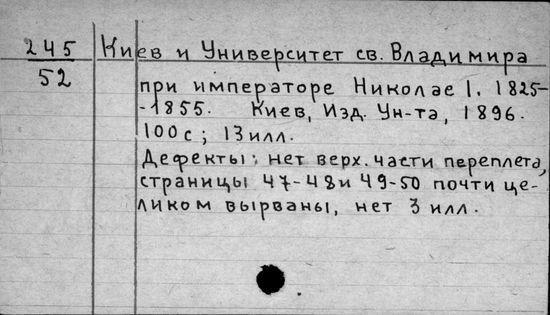 245 Киев и Университет св. Владимира
52
при императоре Николае I. 1825-
-1855. Киев, Изд. Ун-та, 1896.
100с; 13илл.
Дефекты: нет верх. части переплета,
страницы 47-48 и 49-50 почти це-
ликом вырваны, нет 3 илл.